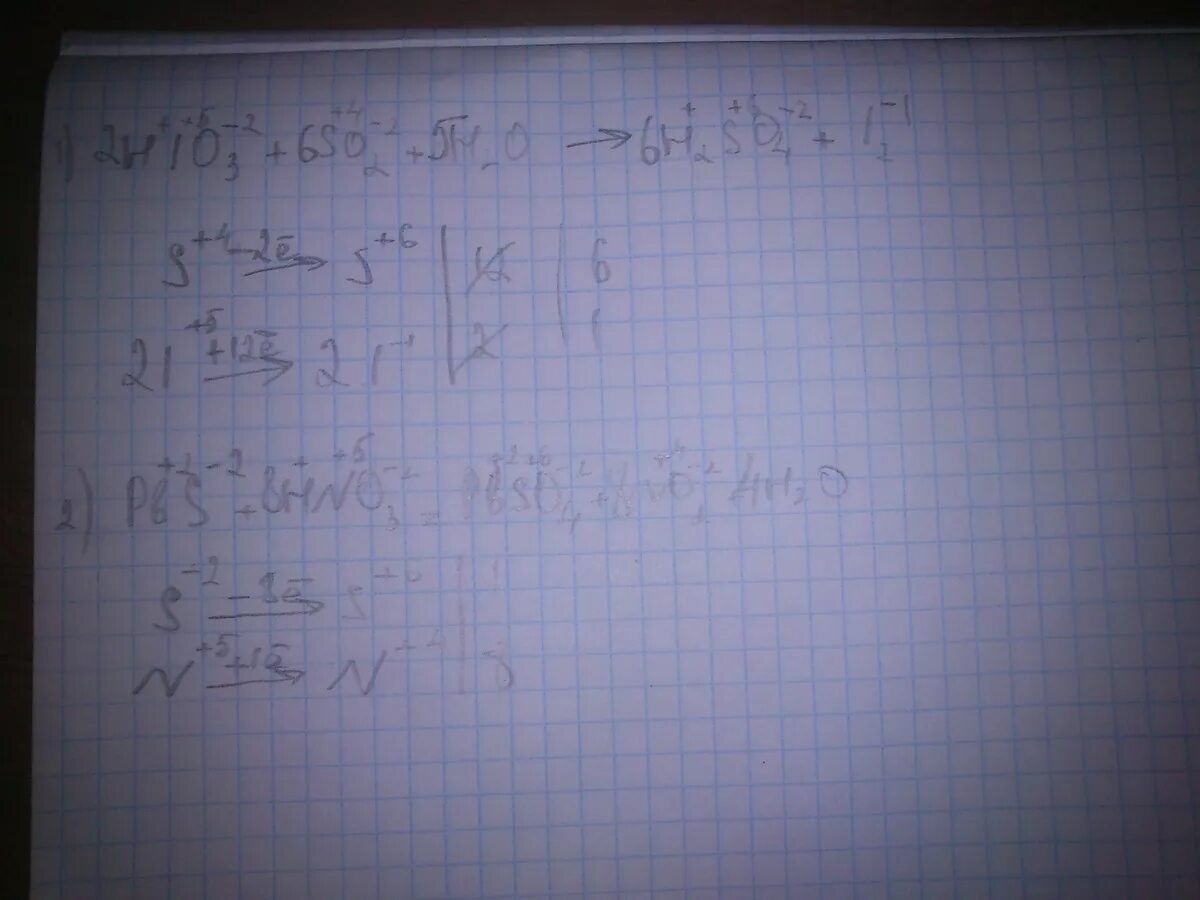 1) 2H⁺I⁺⁵O₃⁻² + 6S⁺⁴O₂⁻² + 5H₂O → 6H₂⁺S⁺⁶O₄⁻² + I₂⁻¹
S⁺⁴ -2ē → S⁺⁶ | 12 | 6
2I⁺⁵ +12ē → 2I⁻¹ | 2 | 1
2) Pb⁺²S⁻² + 8H⁺N⁺⁵O₃⁻² = Pb⁺²S⁺⁶O₄⁻² + 8N⁺⁴O₂⁻² 4H₂O
S⁻² -8ē → S⁺⁶ | 1
N⁺⁵ +1ē → N⁺⁴ | 8